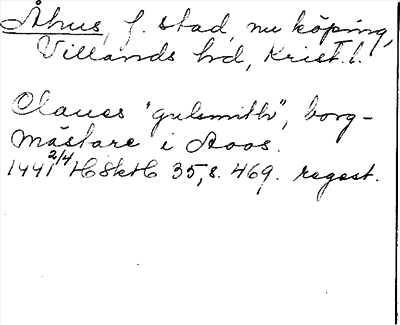 Åhus, f. stad, nu köping,
Villands hd, Krist. l.
Claues "gulsmith", borg-
mästare i Aoos.
1441 2/4 HSktH 35, s. 469. regest.